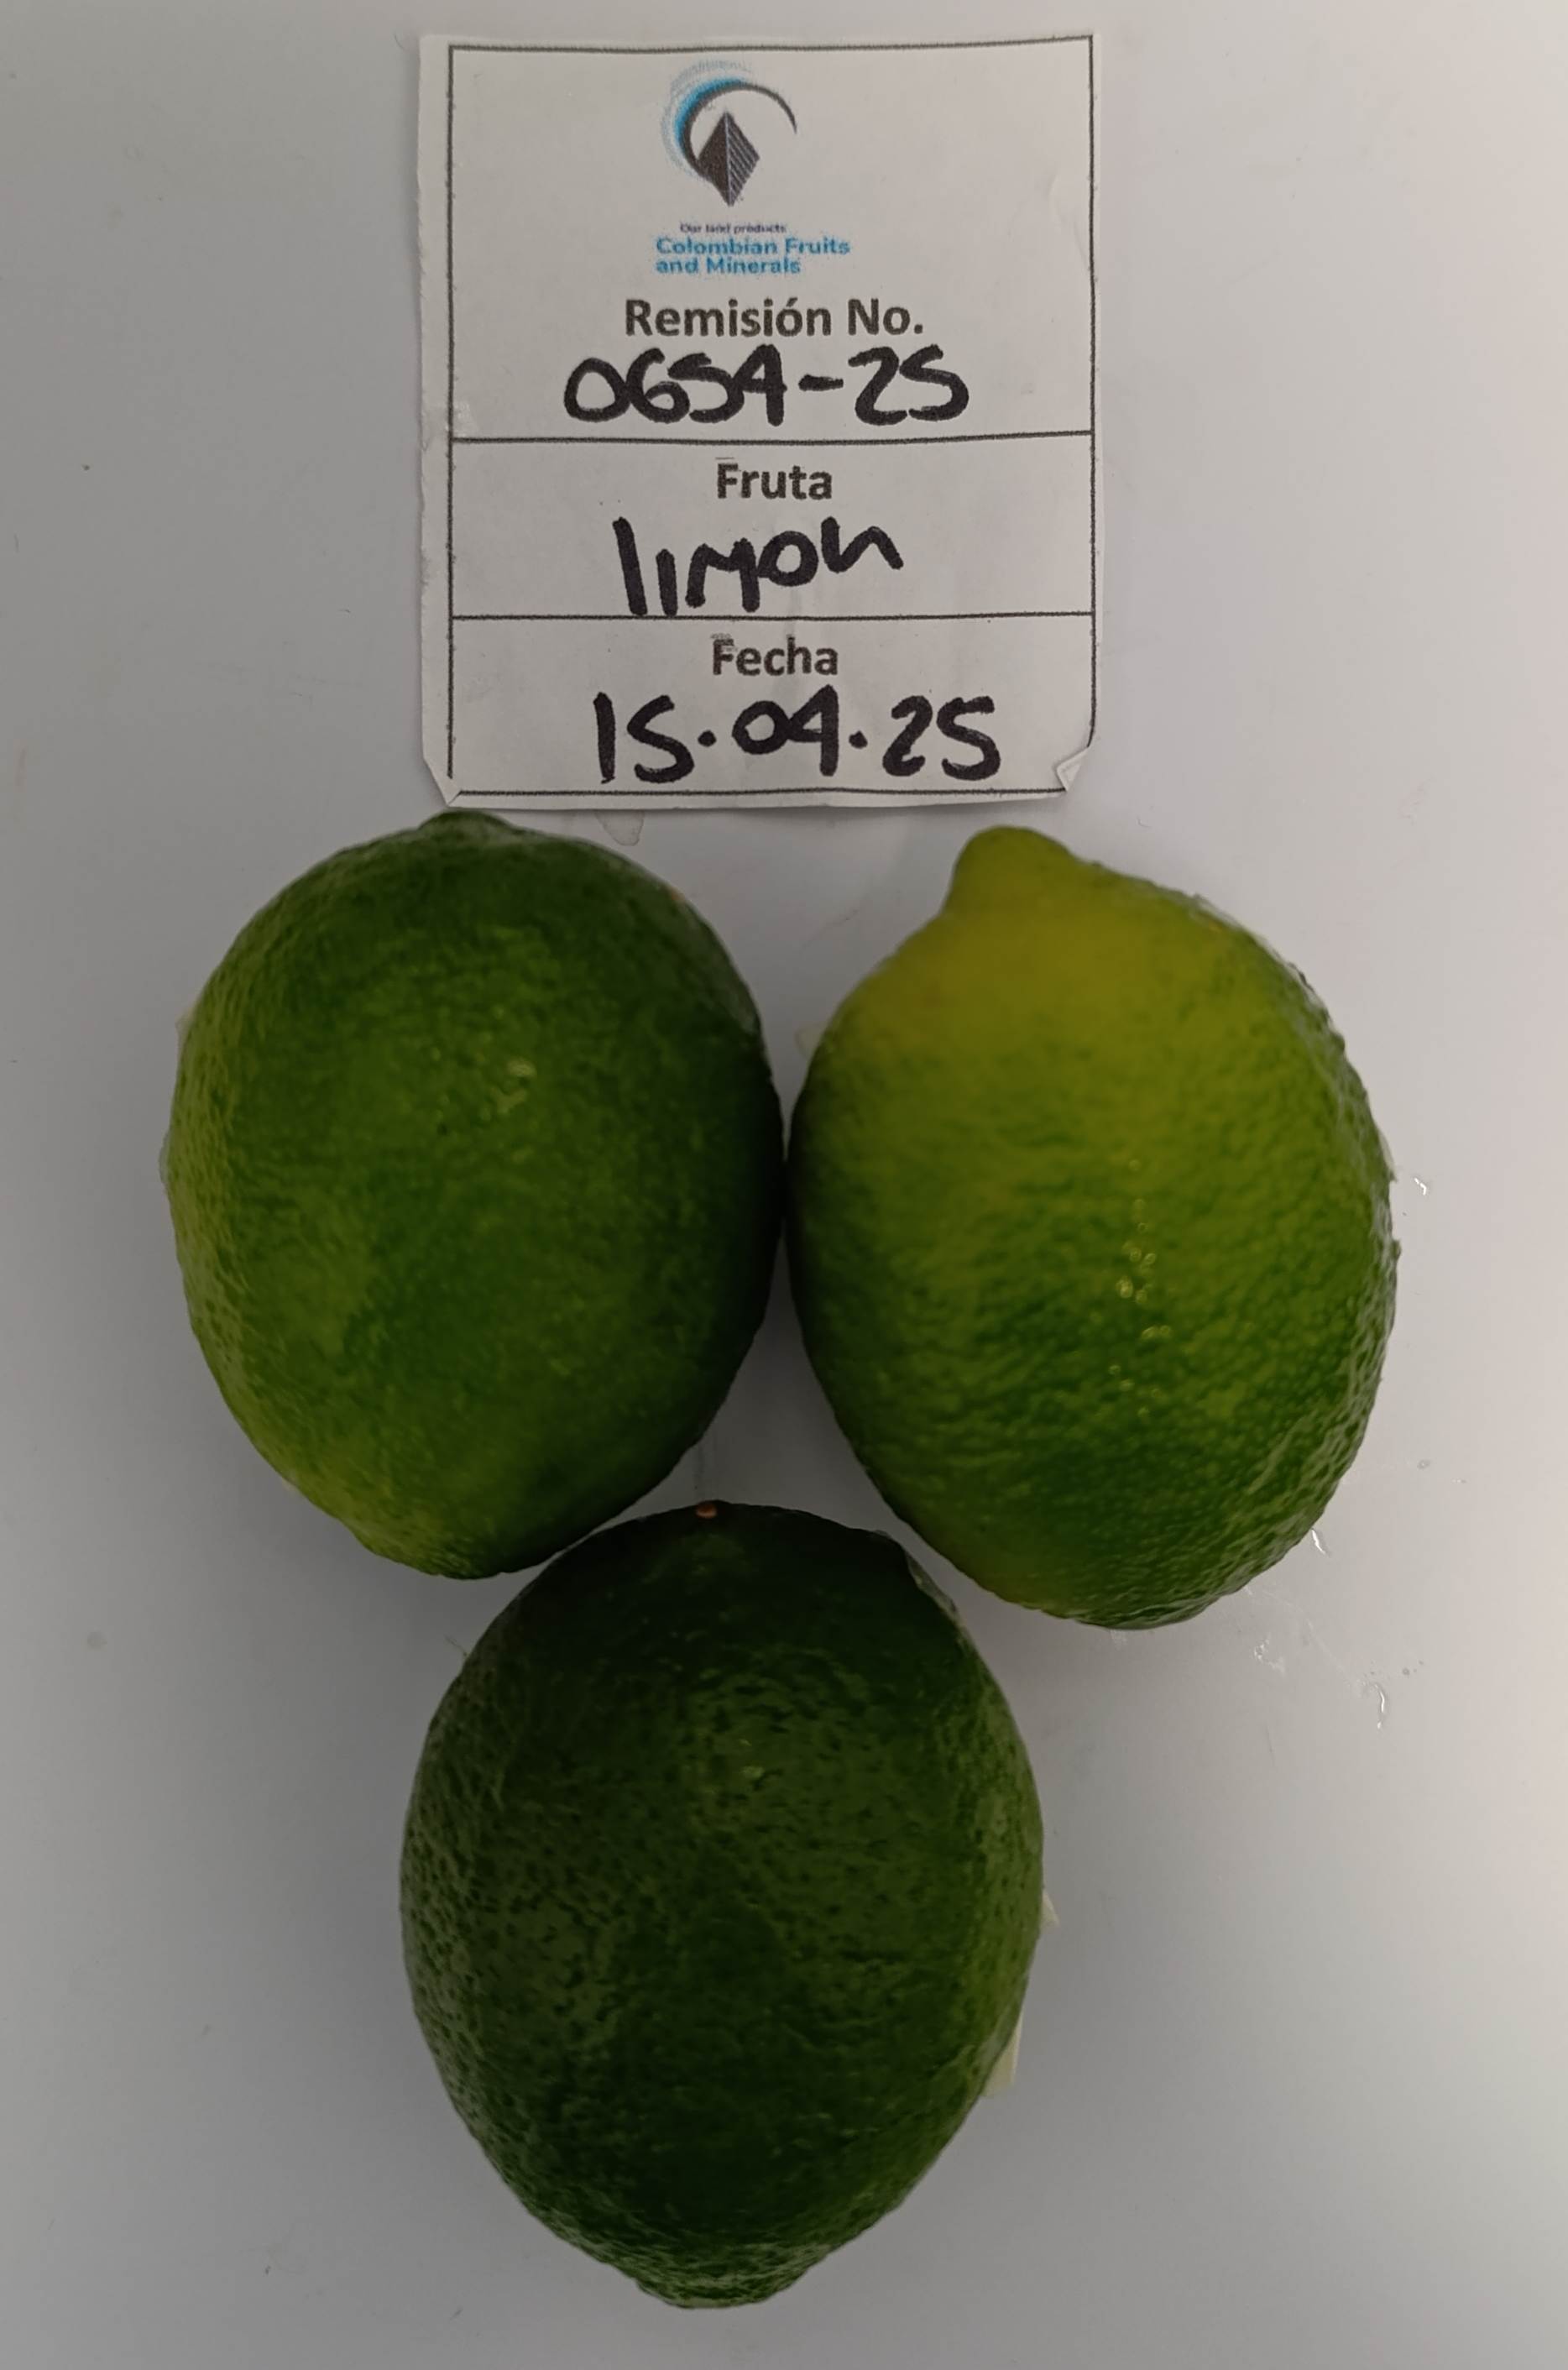 Our land products
Colombian Fruits
and Minerals
Remisión No.
0654-25
Fruta
limon
Fecha
15.04.25